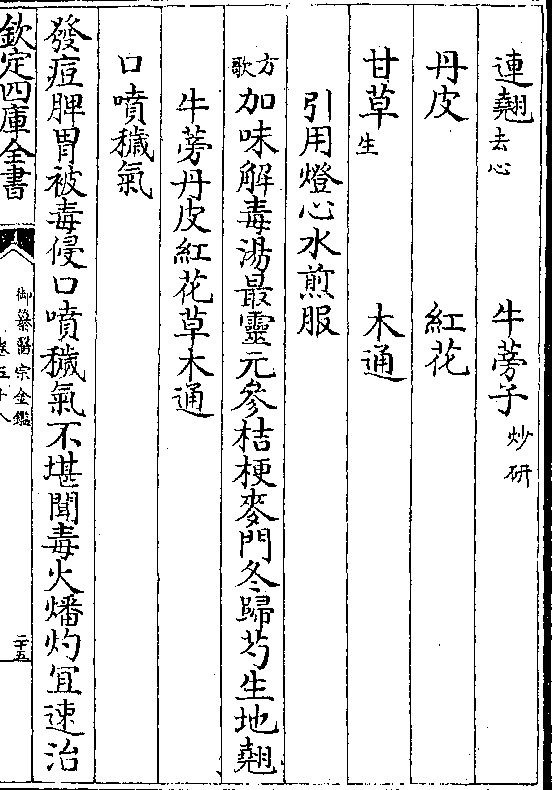 連翹去心 牛蒡子炒研
丹皮 紅花
甘草生 木通
引用燈心水煎服
方歌 加味解毒湯最靈元參桔梗麥門冬歸芍生地翹
牛蒡丹皮紅花草木通
口噴穢氣
發痘脾胃被毒侵口噴穢氣不堪聞毒火燔灼宜速治
欽定四庫全書 御纂醫宗金鑑 卷五十八 二十五